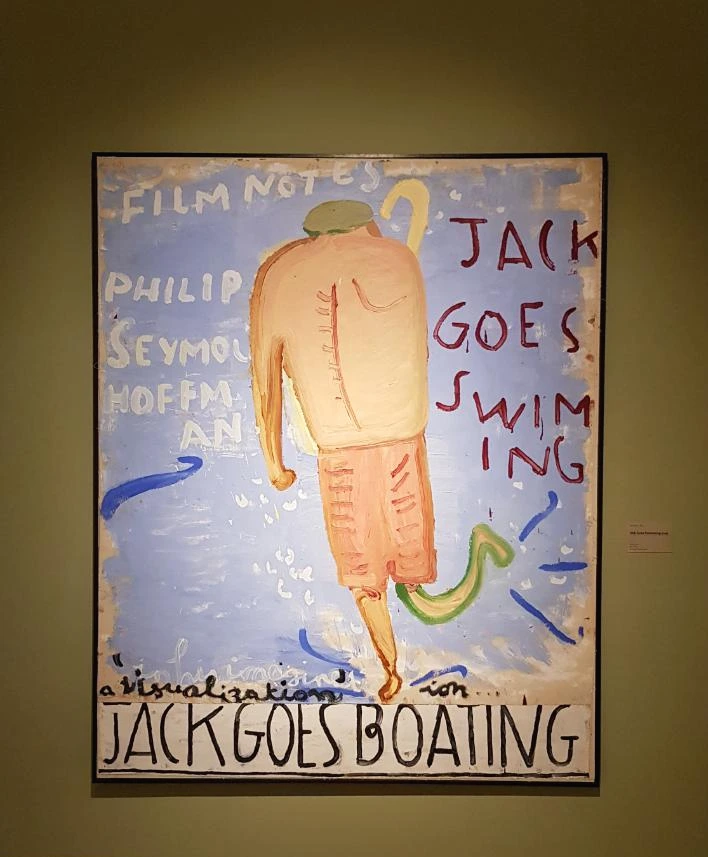 FILM NOTES
PHILIP
SEYMOU
HOFFM
AN
JACK
GOES
SWIM
ING
a "visualization" ion...
JACK GOES BOATING